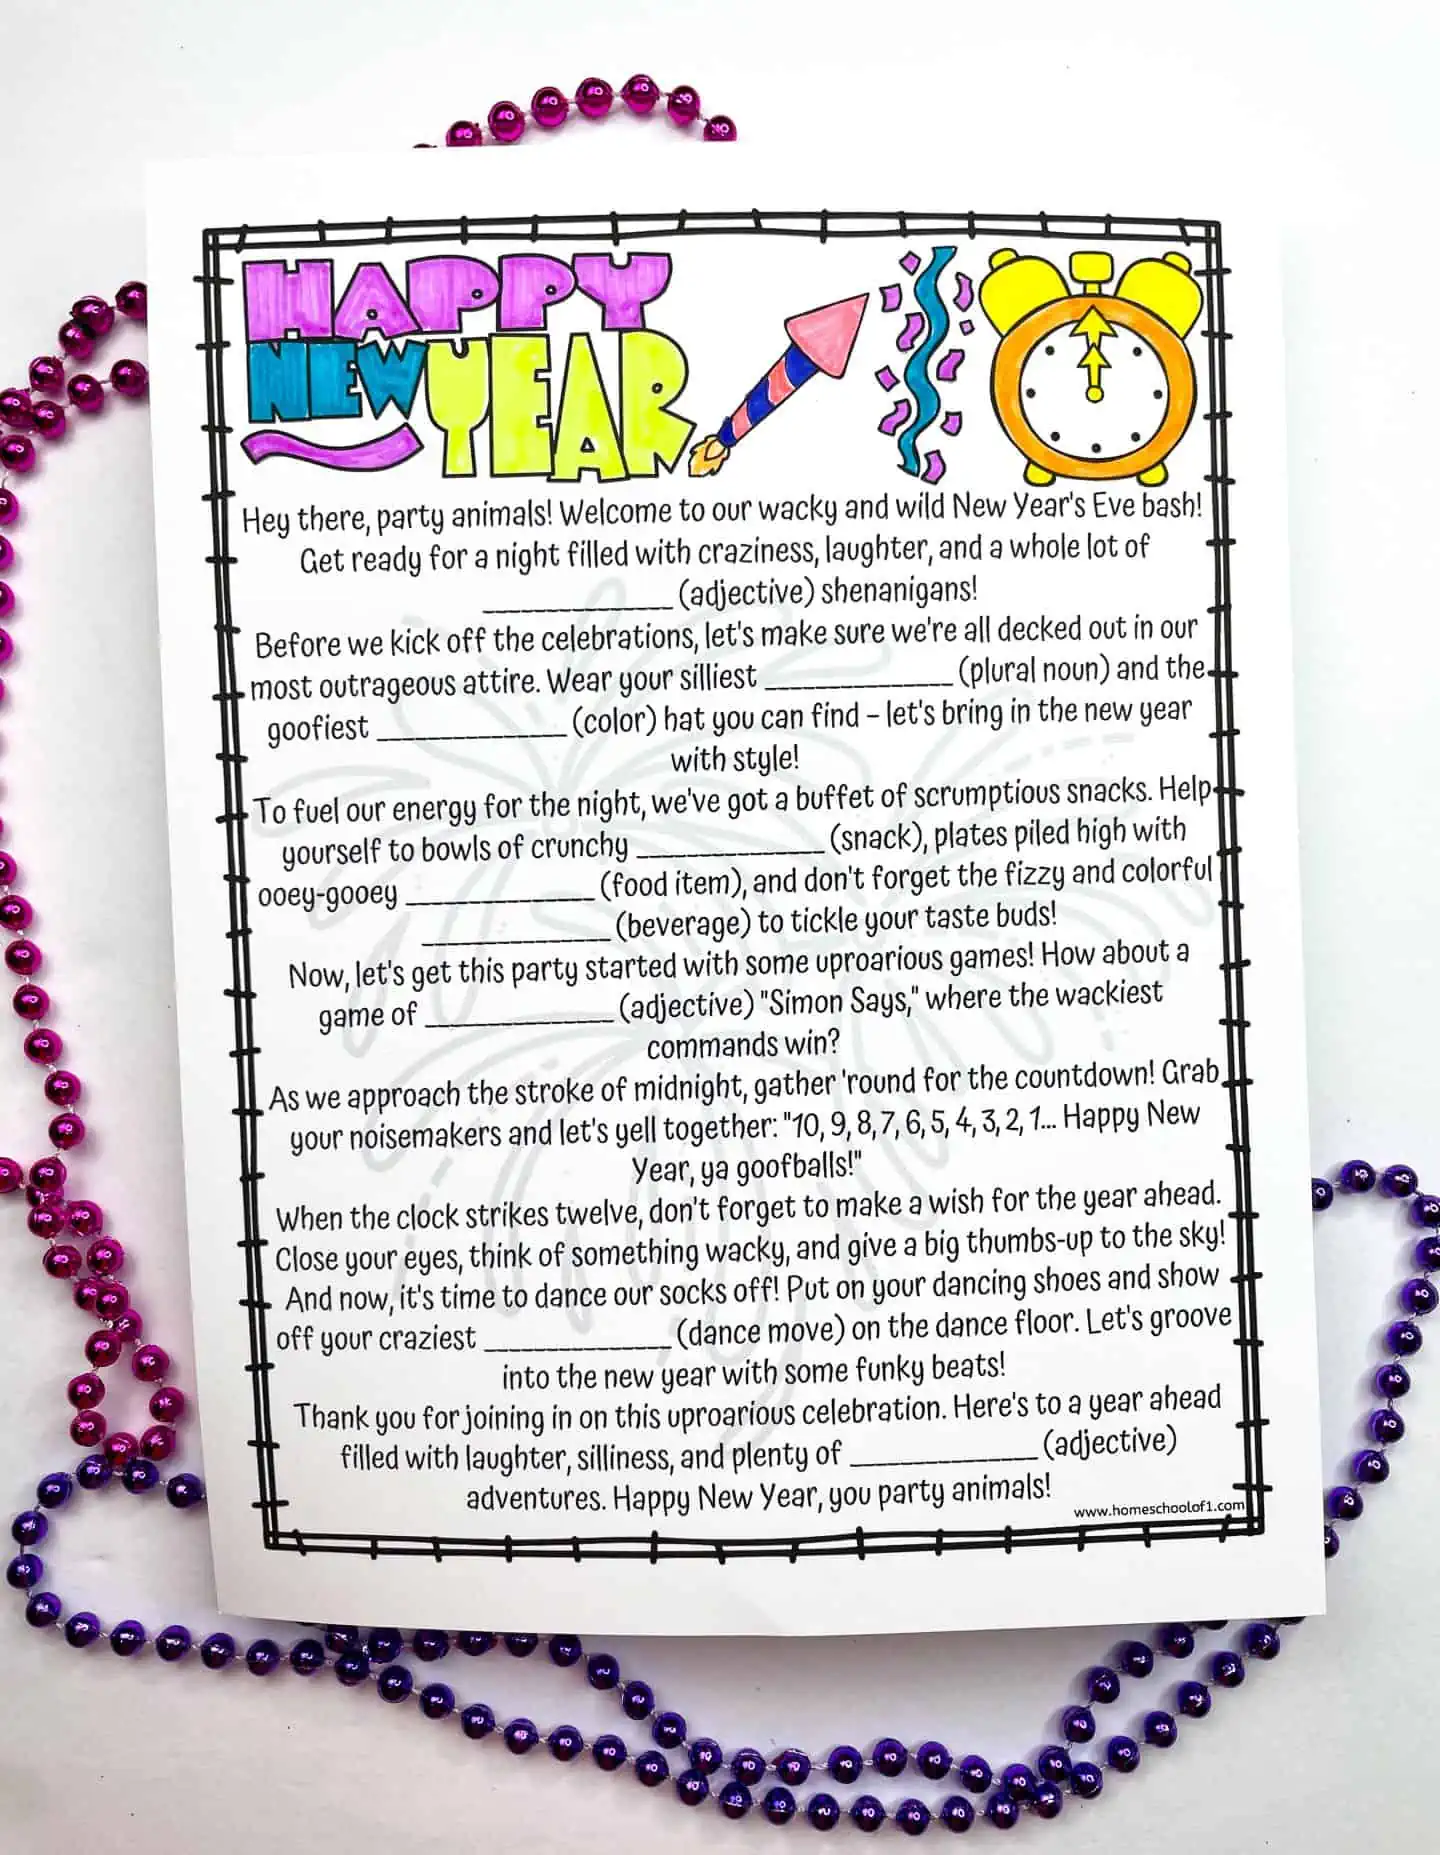 HAPPY
NEW YEAR
Hey there, party animals! Welcome to our wacky and wild New Year's Eve bash!
Get ready for a night filled with craziness, laughter, and a whole lot of
_______________ (adjective) shenanigans!
Before we kick off the celebrations, let's make sure we're all decked out in our
most outrageous attire. Wear your silliest _______________ (plural noun) and the
goofiest _______________ (color) hat you can find – let's bring in the new year
with style!
To fuel our energy for the night, we've got a buffet of scrumptious snacks. Help
yourself to bowls of crunchy _______________ (snack), plates piled high with
ooey-gooey _______________ (food item), and don't forget the fizzy and colorful
_______________ (beverage) to tickle your taste buds!
Now, let's get this party started with some uproarious games! How about a
game of _______________ (adjective) "Simon Says," where the wackiest
commands win?
As we approach the stroke of midnight, gather 'round for the countdown! Grab
your noisemakers and let's yell together: "10, 9, 8, 7, 6, 5, 4, 3, 2, 1... Happy New
Year, ya goofballs!"
When the clock strikes twelve, don't forget to make a wish for the year ahead.
Close your eyes, think of something wacky, and give a big thumbs-up to the sky!
And now, it's time to dance our socks off! Put on your dancing shoes and show
off your craziest _______________ (dance move) on the dance floor. Let's groove
into the new year with some funky beats!
Thank you for joining in on this uproarious celebration. Here's to a year ahead
filled with laughter, silliness, and plenty of _______________ (adjective)
adventures. Happy New Year, you party animals!
www.homeschoolof1.com